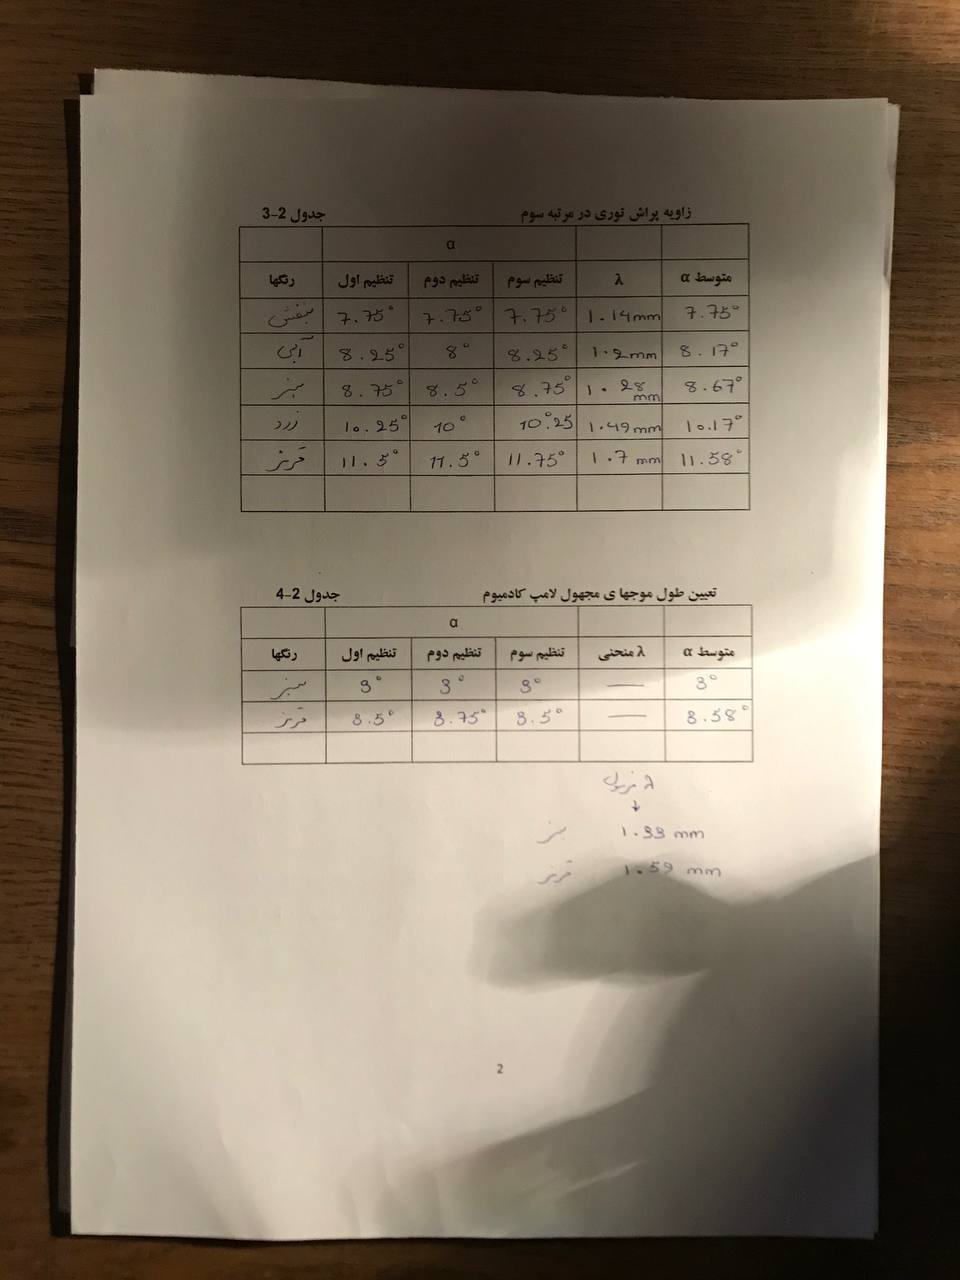 زاویه پراش توری در مرتبه سوم جدول 2-3
α
رنگها تنظیم اول تنظیم دوم تنظیم سوم λ متوسط α
بنفش 7.75° 7.75° 7.75° 1.14mm 7.75°
آبی 8.25° 8° 8.25° 1.2mm 8.17°
سبز 8.75° 8.5° 8.75° 1.28 mm 8.67°
زرد 10.25° 10° 10°.25 1.49mm 10.17°
قرمز 11.5° 11.5° 11.75° 1.7 mm 11.58°
تعیین طول موجها ی مجهول لامپ کادمیوم جدول 2-4
α
رنگها تنظیم اول تنظیم دوم تنظیم سوم λ منحنی متوسط α
سبز 3° 3° 3° — 3°
قرمز 3.5° 3.75° 3.5° — 3.58°
λ فرمول
↓
سبز 1.33 mm
قرمز 1.59 mm
2